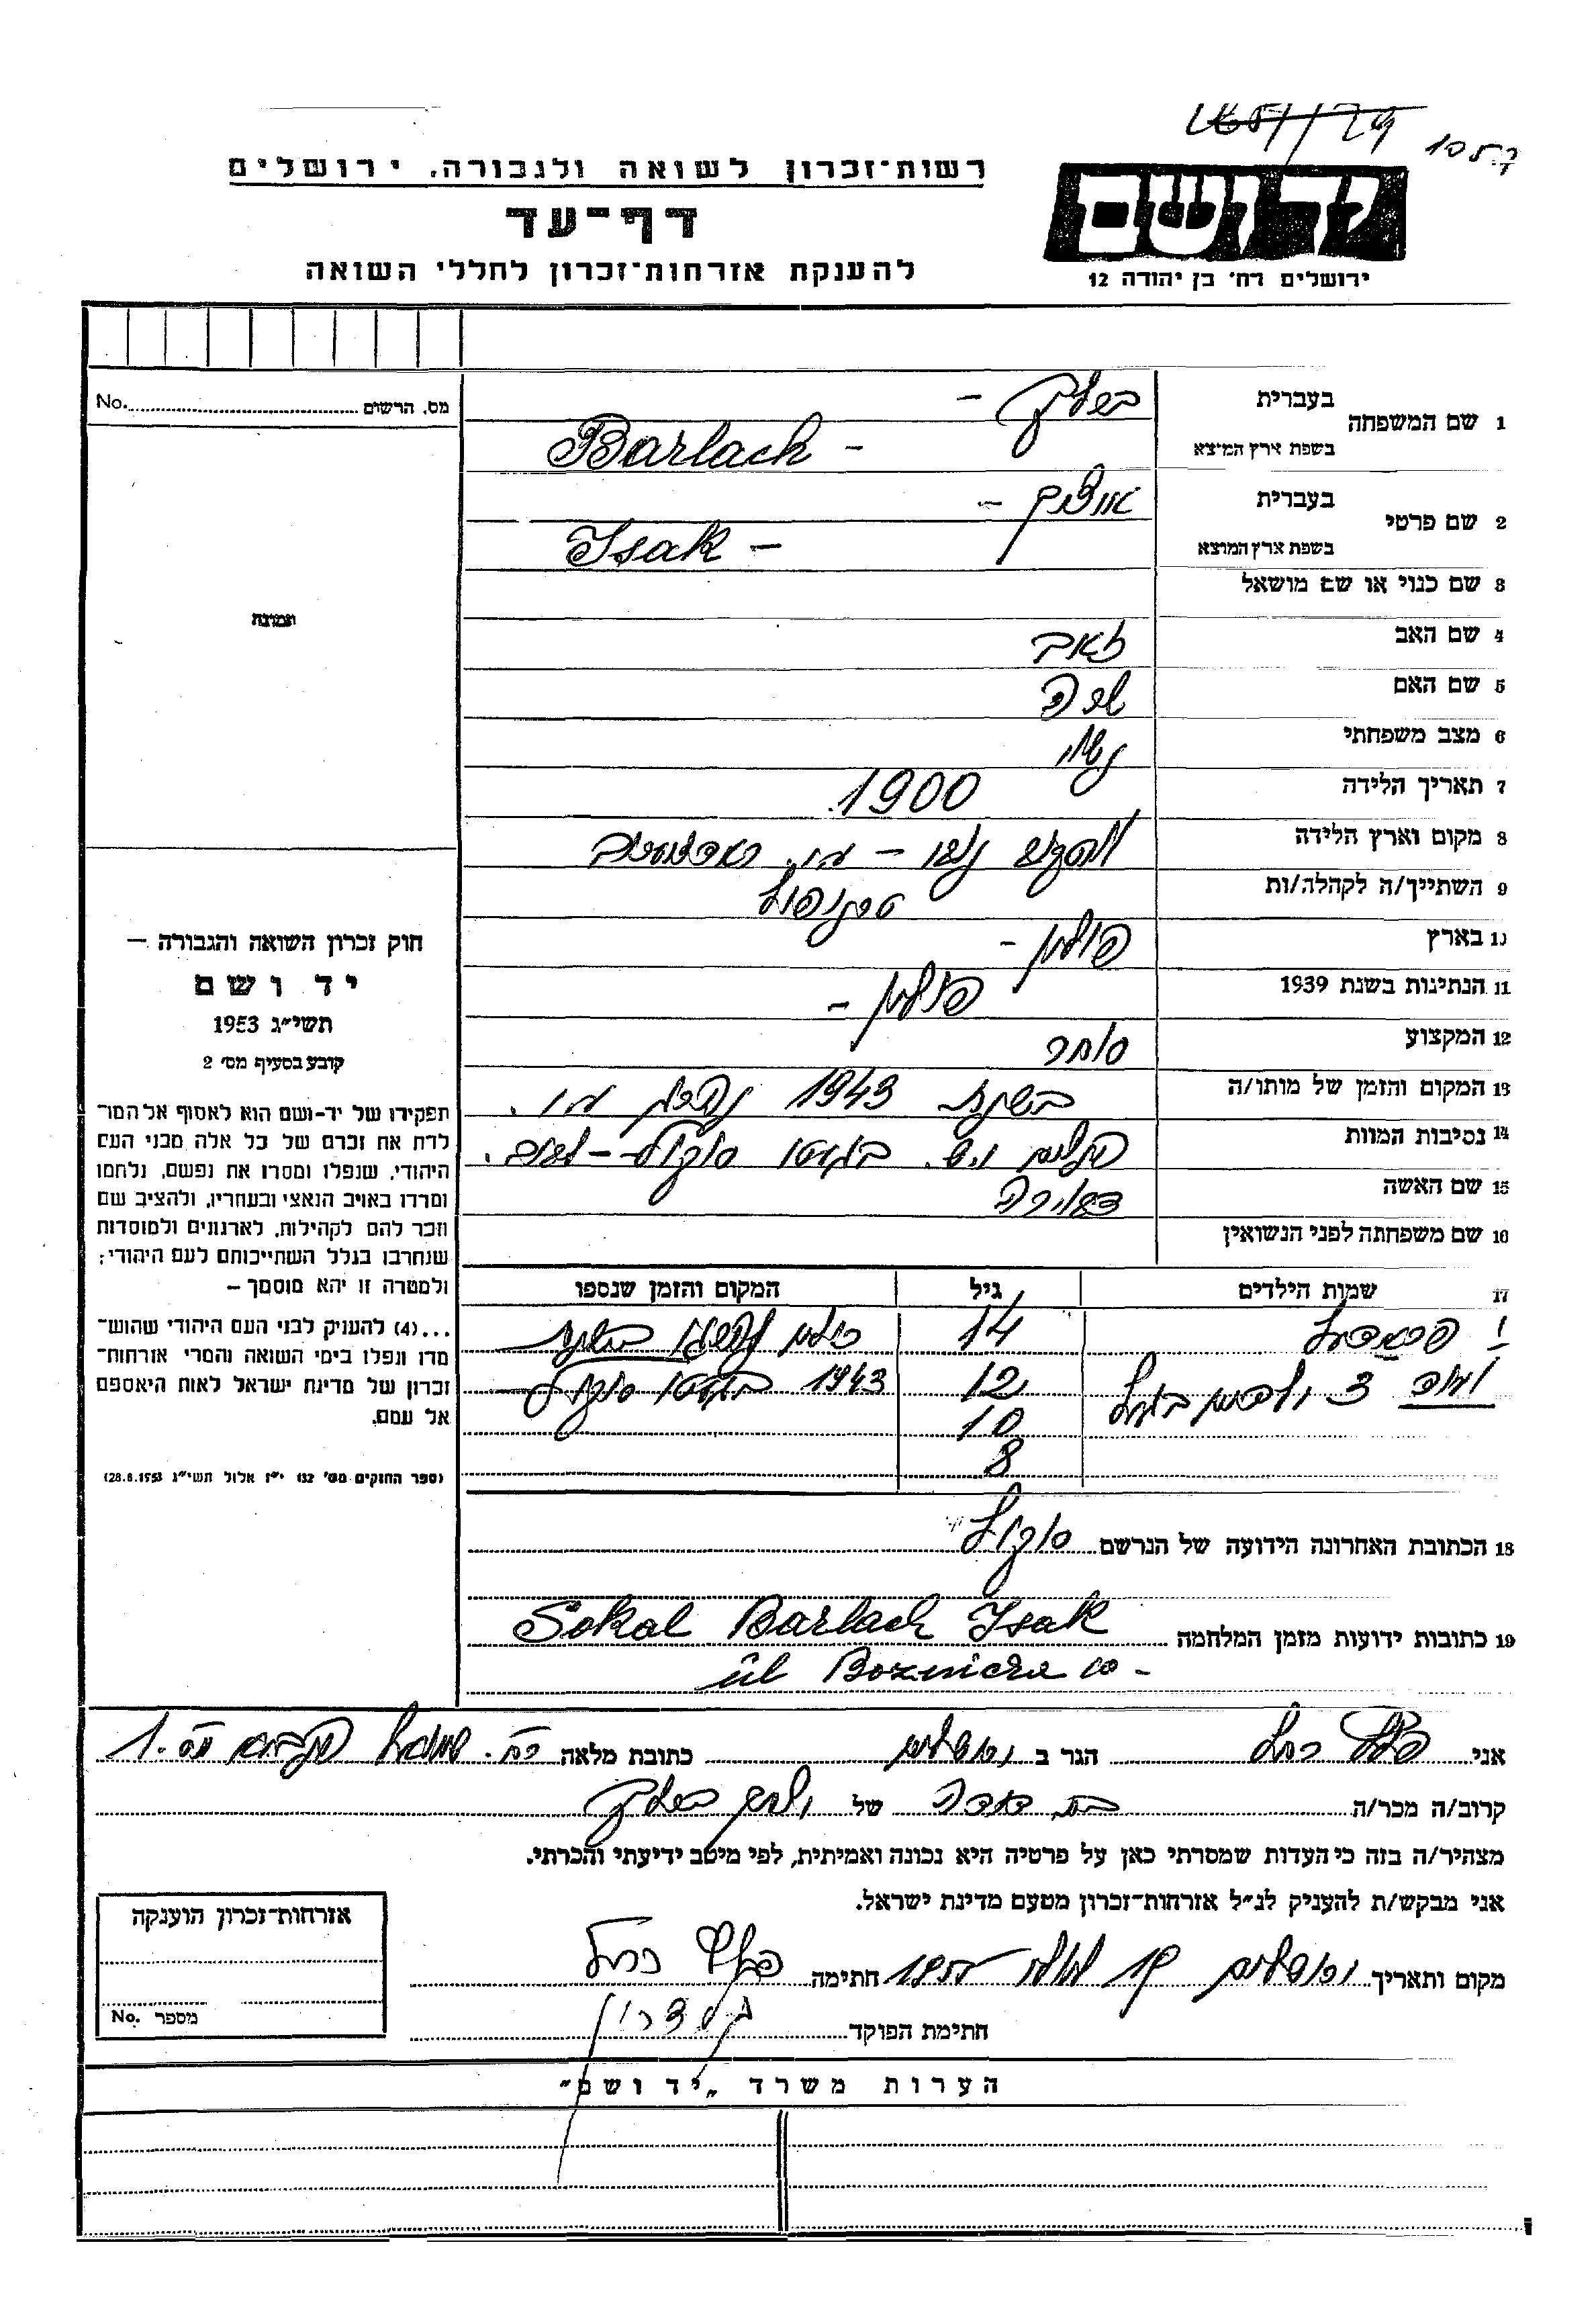 רשות־זכרון לשואה ולגבורה. ירושלים
דף־עד
להענקת אזרחות־זכרון לחללי השואה
יד ושם
ירושלים רח' בן יהודה 12
מס. הרשום No.
1 שם המשפחה
בעברית
בשפת ארץ המוצא Barlach –
2 שם פרטי
בעברית
בשפת ארץ המוצא Isak –
3 שם כנוי או שם מושאל
4 שם האב זאב
5 שם האם שרה
6 מצב משפחתי נשוי
7 תאריך הלידה 1900
8 מקום וארץ הלידה
9 השתייך/ה לקהלה/ות טרנופול
10 בארץ פולין –
11 הנתינות בשנת 1939 פולין –
12 המקצוע סוחר
13 המקום והזמן של מותו/ה בשנת 1943 נהרג ע.י.
14 נסיבות המוות בגטו סוקל
15 שם האשה דבורה
16 שם משפחתה לפני הנשואין
17 שמות הילדים גיל המקום והזמן שנספו
14 בשנת
12 1943 בגטו סוקל
10
8
18 הכתובת האחרונה הידועה של הנרשם סוקל
19 כתובות ידועות מזמן המלחמה Sokal Barlach Isak
ul Boznicza 10 –
תמונה
חוק זכרון השואה והגבורה –
יד ושם
תשי"ג 1953
קובע בסעיף מס' 2
תפקידו של יד-ושם הוא לאסוף אל המו־
לדת את זכרם של כל אלה מבני העם
היהודי, שנפלו ומסרו את נפשם, נלחמו
ומרדו באויב הנאצי ובעוזריו, ולהציב שם
וזכר להם לקהילות, לארגונים ולמוסדות
שנחרבו בגלל השתייכותם לעם היהודי;
ולמטרה זו יהא מוסמך –
...(4) להעניק לבני העם היהודי שהוש־
מדו ונפלו בימי השואה והמרי אזרחות־
זכרון של מדינת ישראל לאות היאספם
אל עמם.
(ספר החוקים מס' 132 י"ז אלול תשי"ג 28.8.1953)
אני רחל הגר ב ירושלים כתובת מלאה רח. שמואל הנביא מס. 1
קרוב/ה מכר/ה בת דודה של
מצהיר/ה בזה כי העדות שמסרתי כאן על פרטיה היא נכונה ואמיתית, לפי מיטב ידיעתי והכרתי.
אני מבקש/ת להעניק לנ"ל אזרחות־זכרון מטעם מדינת ישראל.
מקום ותאריך ירושלים חתימה רחל
חתימת הפוקד
אזרחות־זכרון הוענקה
מספר No.
הערות משרד „יד ושם"